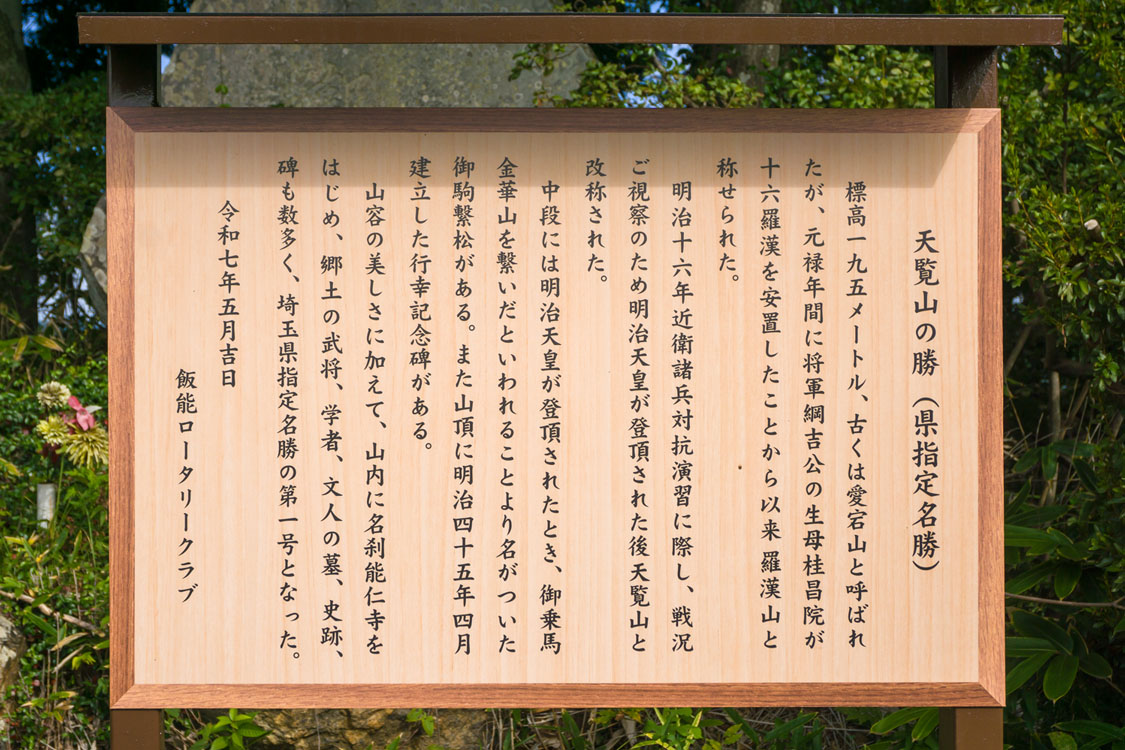 天覧山の勝（県指定名勝）
標高一九五メートル、古くは愛宕山と呼ばれ
たが、元禄年間に将軍綱吉公の生母桂昌院が
十六羅漢を安置したことから以来羅漢山と
称せられた。
明治十六年近衛諸兵対抗演習に際し、戦況
ご視察のため明治天皇が登頂された後天覧山と
改称された。
中段には明治天皇が登頂されたとき、御乗馬
金華山を繋いだといわれることより名がついた
御駒繋松がある。また山頂に明治四十五年四月
建立した行幸記念碑がある。
山容の美しさに加えて、山内に名刹能仁寺を
はじめ、郷土の武将、学者、文人の墓、史跡、
碑も数多く、埼玉県指定名勝の第一号となった。
令和七年五月吉日
飯能ロータリークラブ